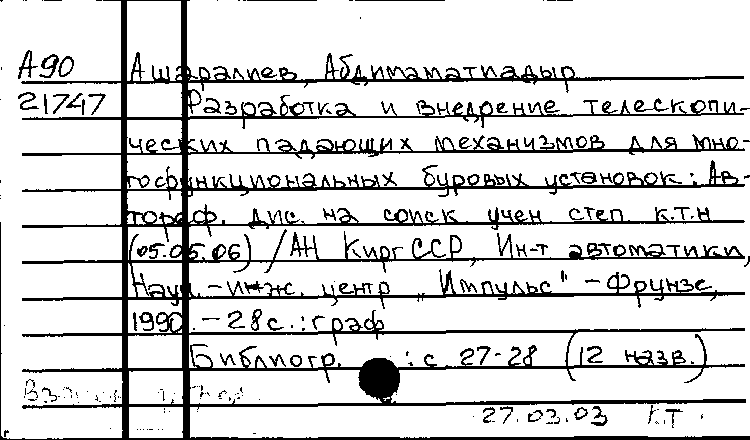 А90 Ашаралиев, Абдимаматпадыр
21747 Разработка и внедрение телескопи-
ческих падающих механизмов для мно-
гофункциональных буровых установок: Ав-
тореф. дис. на соиск учен степ к.т.н
(05.05.06) / АН Кирг ССР, Ин-т автоматики,
Науч.-инж. центр „Импульс" - Фрунзе,
1990. - 28 с.: граф
Библиогр. : с 27-28 (12 назв.)
27.03.03 К.Т.